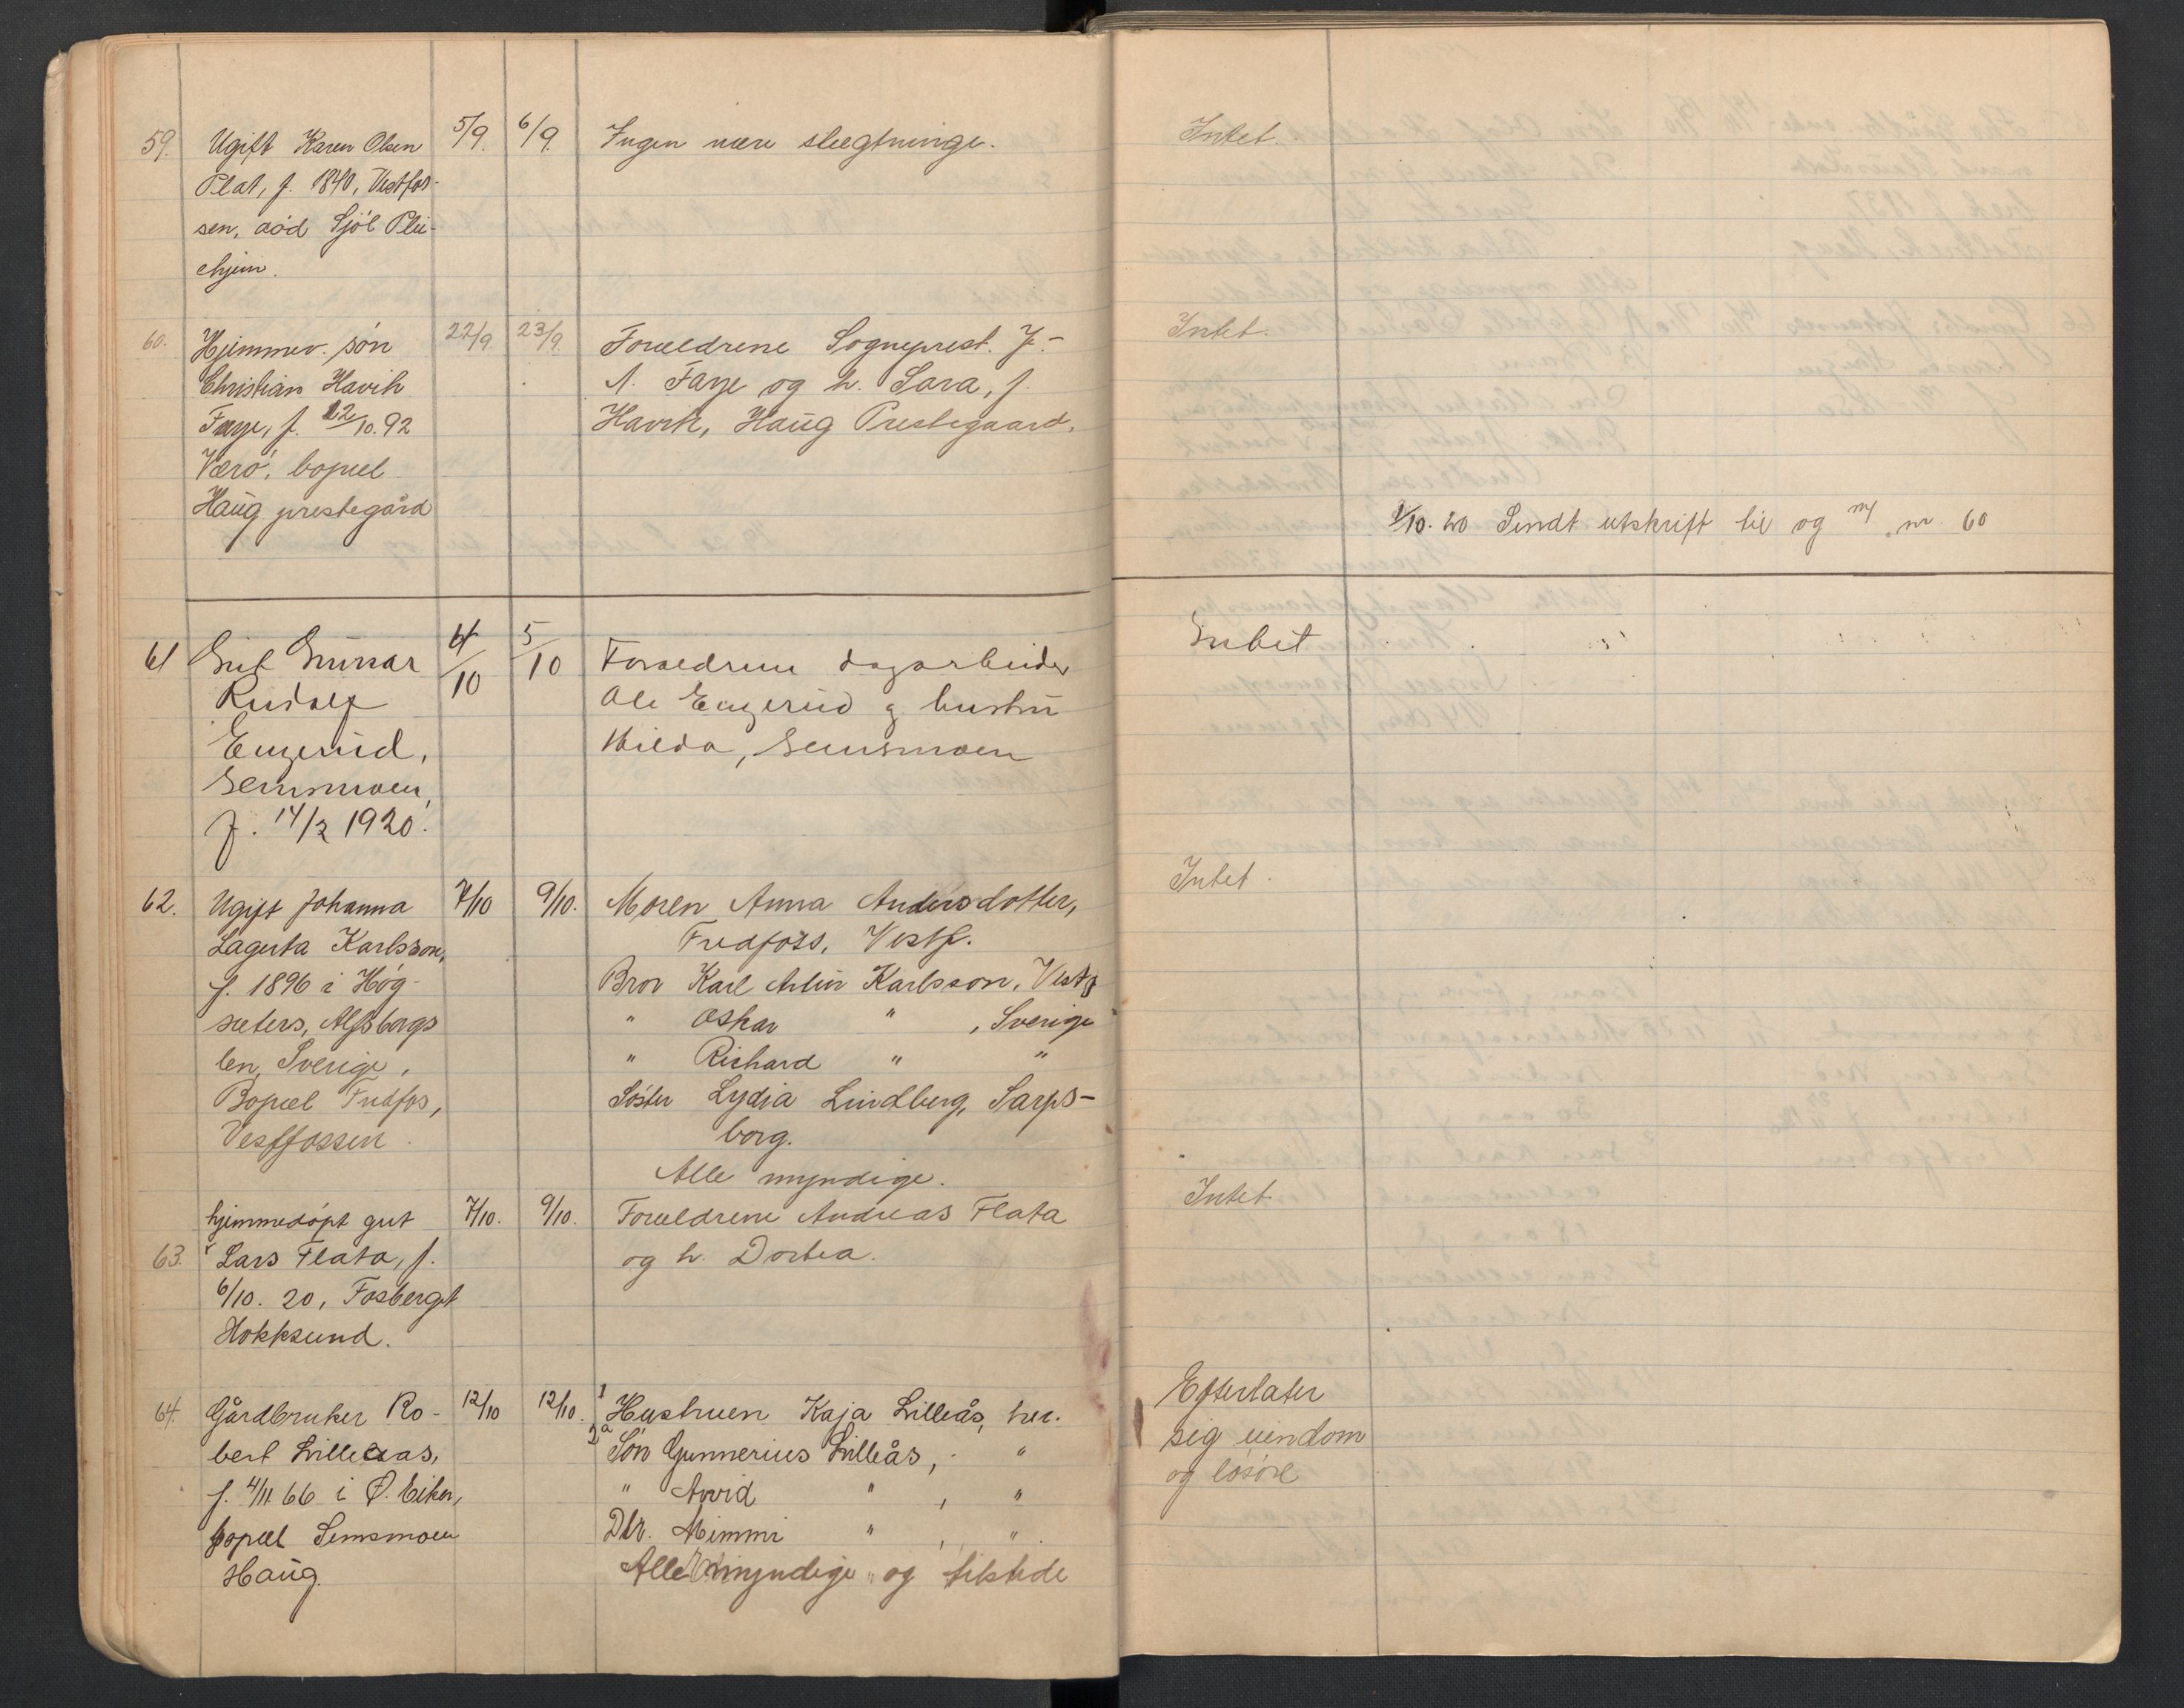 59. Ugift Karen Olsen 5/9. 6/9. Ingen nære slegtninge. Intet.
Plat, f. 1840, Vestfos-
sen, død Sjøl Plei-
ehjem.
60. Hjemmev. søn 22/9. 23/9. Forældrene Sogneprest J. Intet.
Christian Havik A. Faye og h. Sara, f.
Faye, f. 22/10.92 Havik, Haug Prestegaard.
Værø, bopæl
Haug prestegård
2/10. 20 Sendt utskrift til og m/ nr. 60
61 Gut Gunnar 4/10 5/10 Forældrene dagarbeider Intet
Rudolf Ole Engerud og hustru
Engerud, Hilda, Semsmoen
Semsmoen,
f. 14/2 1920.
62. Ugift Johanna 7/10 9/10. Moren Anna Andersdotter, Intet.
Lagerta Karlsson, Fredfoss, Vestf.
f. 1896 i Høg- Bror Karl Artur Karlsson, Vestf
sæters, Alfsborgs " Oskar " , Sverige
len, Sverige, " Richard " "
Bopæl Fredfos, Søster Lydia Lindberg, Sarps-
Vestfossen. borg.
Alle myndige.
hjemmedøpt gut 7/10. 9/10. Forældrene Andreas Flata Intet
63. Lars Flata, f. og h. Dortea.
6/10. 20, Fosberget
Hokksund.
64. Gårdbruker Ro- 12/10 12/10. 1 Hustruen Kaja Lilleås, her. Efterlater
bert Lilleaas, 2a Søn Gunnerius Lilleås, " sig eiendom
f. 4/11 66 i Ø. Eiker, " Arvid " , " og løsøre
bopæl Semsmoen Dtr. Mimmi " , "
Haug. Alle myndige og tilstede